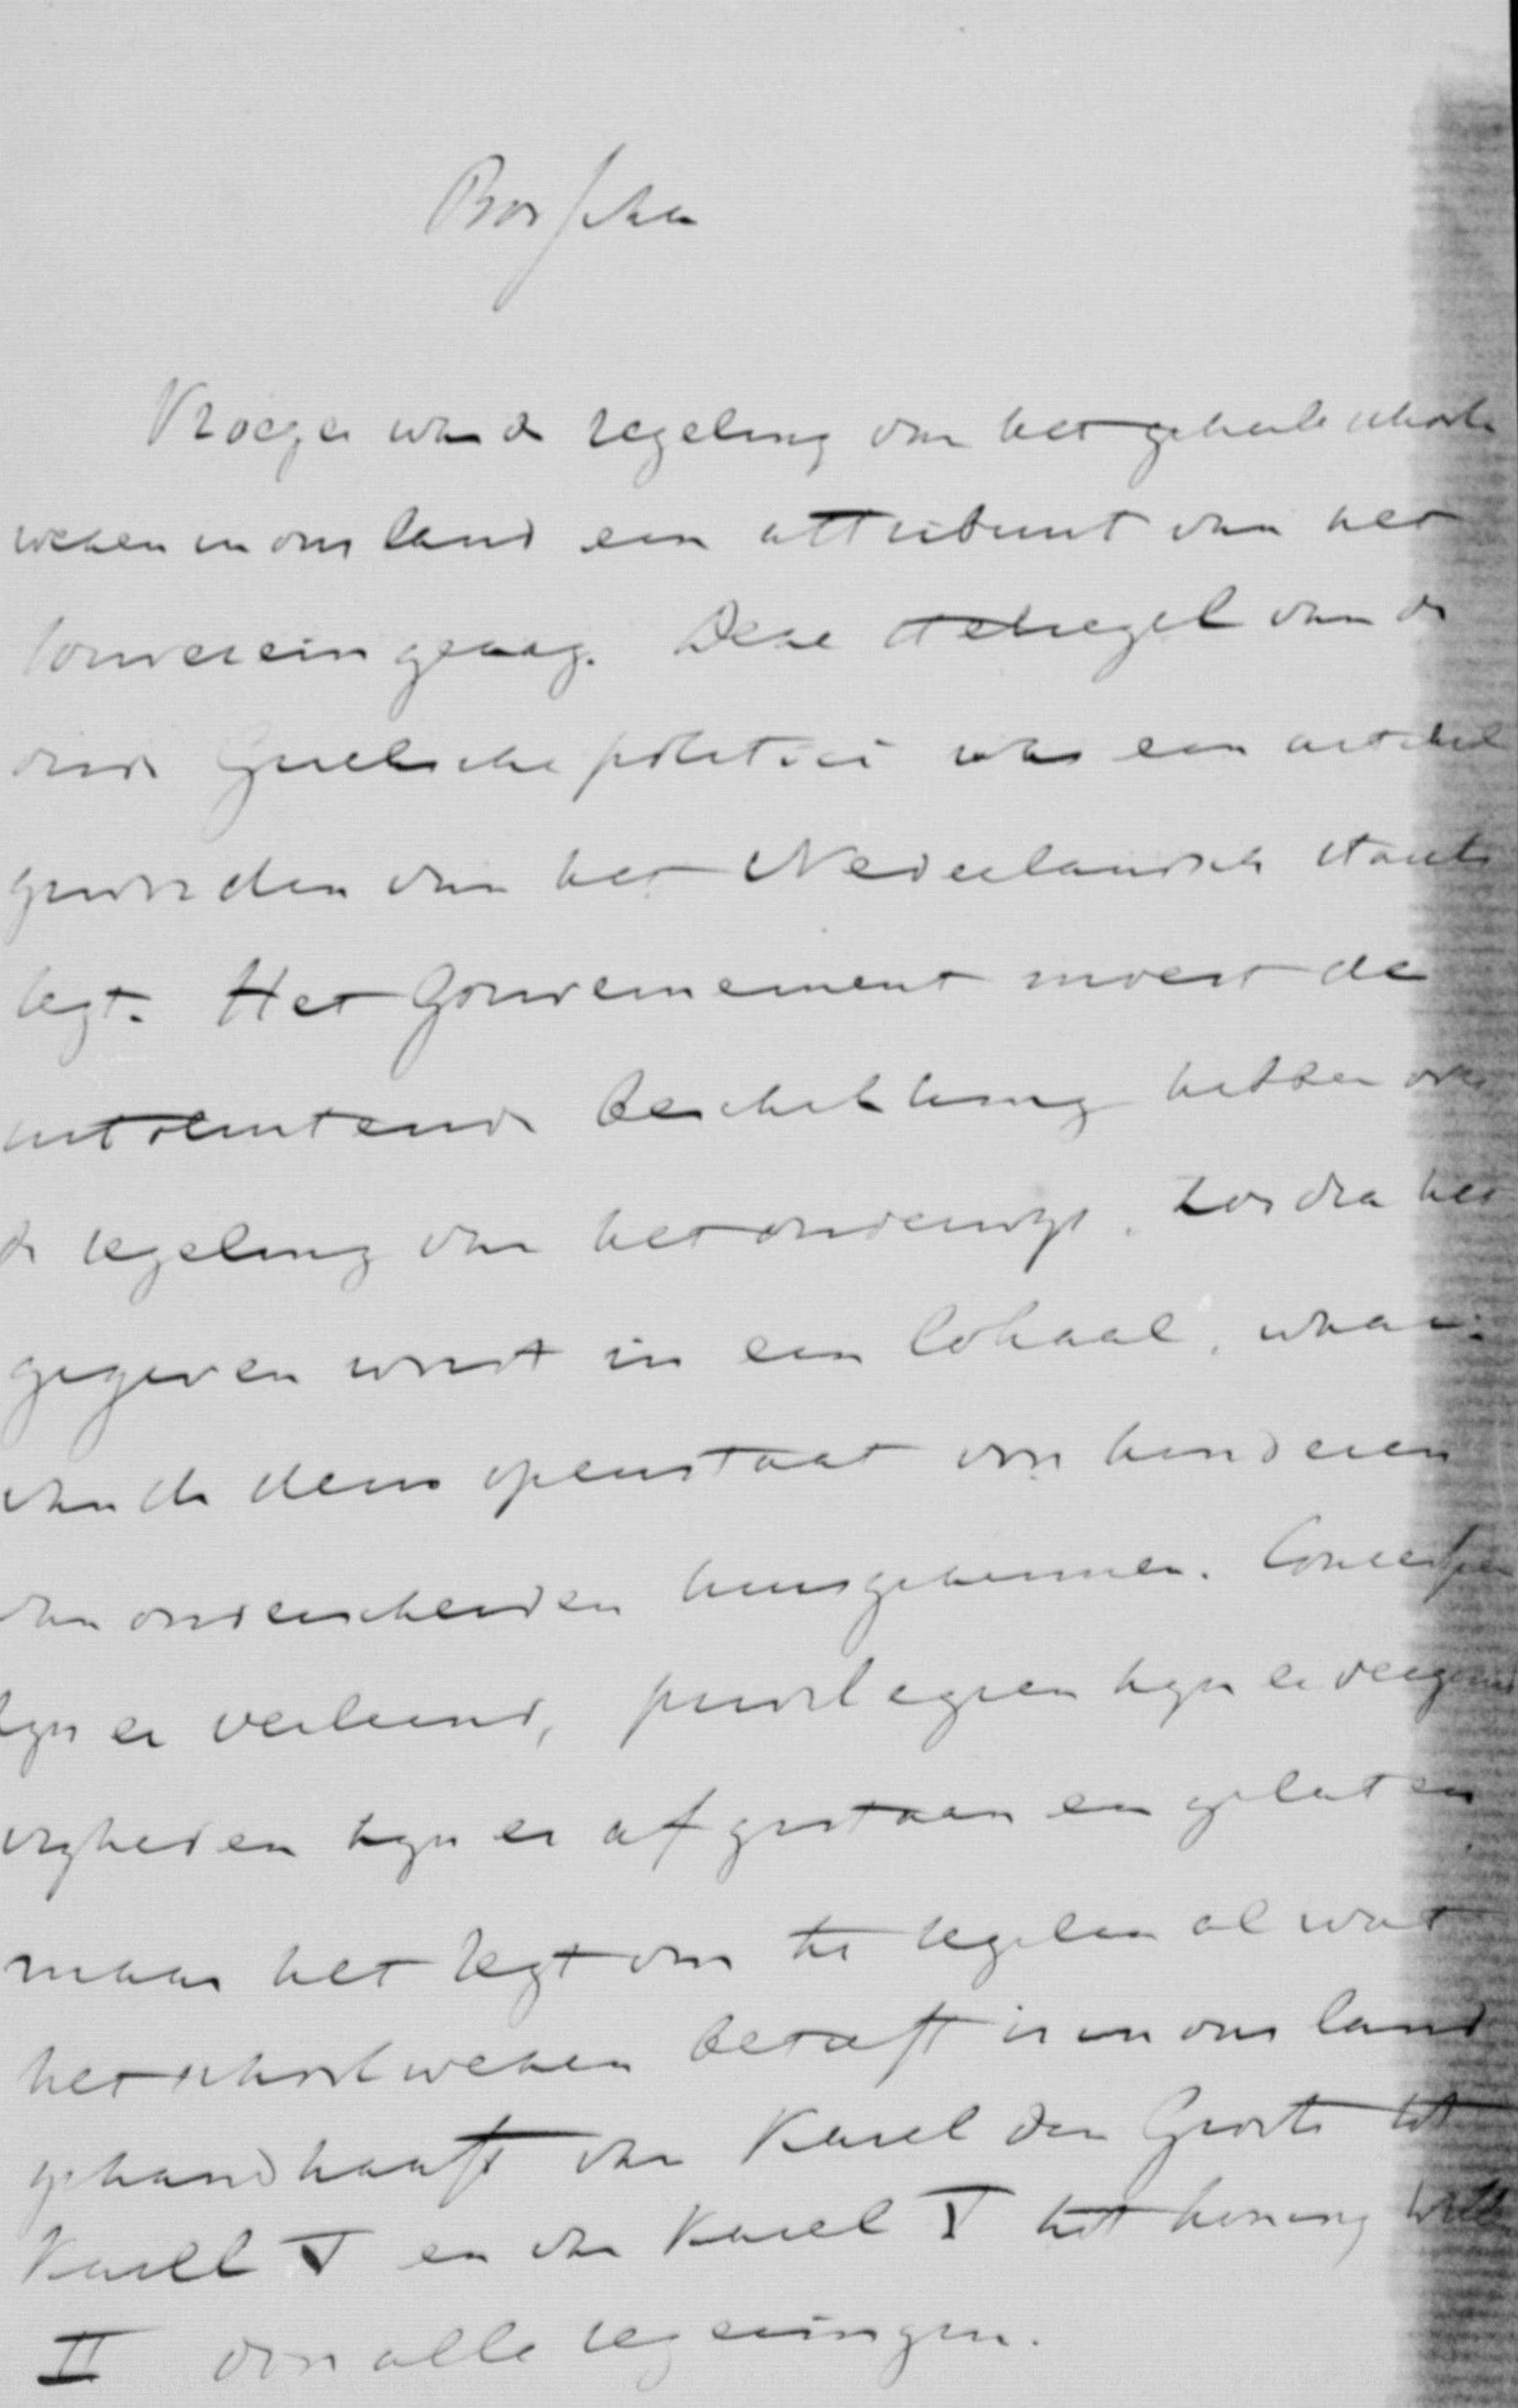 Bosscha
Vroeger was de regeling van het geheele school
wezen in ons land een attribuut van het
souverein gezag. Deze stelregel van de
oude Grieksche politici was een artikel
geworden van het Nederlandsch staats
regt. Het Gouvernement moest de
uitsluitende beschikking hebben over
de regeling van het onderwijs. Zoodra het
gegeven wordt in een lokaal, waar
van de deur openstaat voor kinderen
van onderscheiden huisgezinnen. Concessien
zijn er verleend, privilegien zijn er vergund
vrijheden zijn er afgestaan en gelaten
maar het regt om te regelen al wat
het schoolwezen betreft is in ons land
gehandhaaft van Karel den Groote tot
Karel V en van Karel V tot koning Will
II door alle regeeringen.